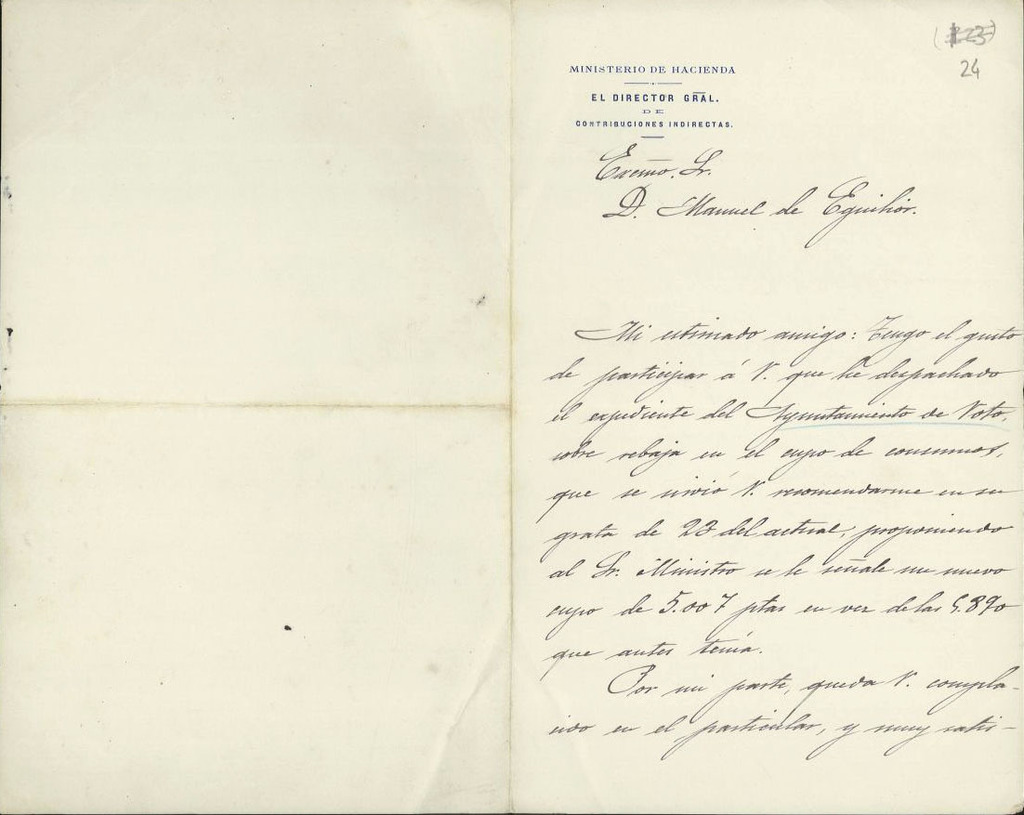 (123)
24
MINISTERIO DE HACIENDA
EL DIRECTOR GRAL.
DE
CONTRIBUCIONES INDIRECTAS.
Excmo. Sr.
D. Manuel de Eguilior.
Mi estimado amigo: Tengo el gusto
de participar á V. que he despachado
el expediente del Ayuntamiento de Voto,
sobre rebaja en el cupo de consumos,
que se sirvió V. recomendarme en su
grata de 23 del actual, proponiendo
al Sr. Ministro se le señale un nuevo
cupo de 5.007 ptas en vez de las 5.890
que antes tenía.
Por mi parte, queda V. compla-
cido en el particular, y muy satis-